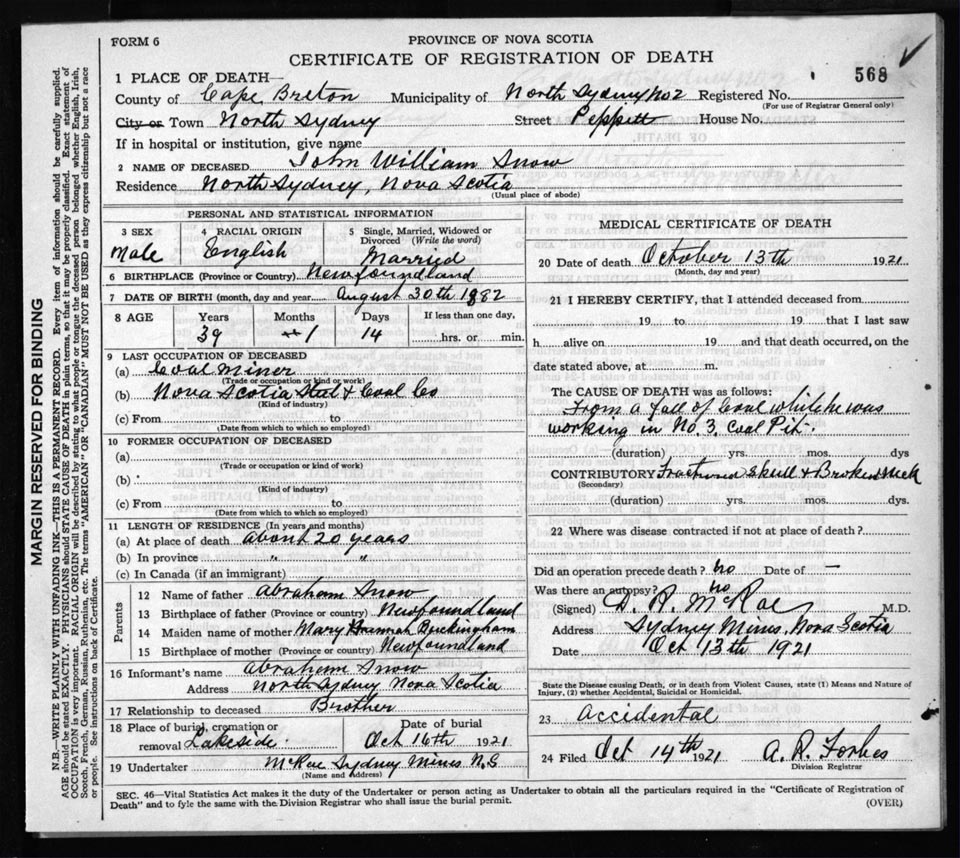 FORM 6
PROVINCE OF NOVA SCOTIA
CERTIFICATE OF REGISTRATION OF DEATH
568
1 PLACE OF DEATH—
County of Cape Breton Municipality of North Sydney No 2 Registered No.
(For use of Registrar General only)
City or Town North Sydney Street Peppitt House No.
If in hospital or institution, give name
2 NAME OF DECEASED John William Snow
Residence North Sydney, Nova Scotia
(Usual place of abode)
PERSONAL AND STATISTICAL INFORMATION
3 SEX 4 RACIAL ORIGIN 5 Single, Married, Widowed or Divorced (Write the word)
Male English Married
6 BIRTHPLACE (Province or Country) Newfoundland
7 DATE OF BIRTH (month, day and year) August 30th 1882
8 AGE Years Months Days If less than one day,
39 1 14 hrs. or min.
9 LAST OCCUPATION OF DECEASED
(a) Coal Miner
(Trade or occupation or kind of work)
(b) Nova Scotia Steel & Coal Co
(Kind of industry)
(c) From to
(Date from which to which so employed)
10 FORMER OCCUPATION OF DECEASED
(a)
(Trade or occupation or kind of work)
(b)
(Kind of industry)
(c) From to
(Date from which to which so employed)
11 LENGTH OF RESIDENCE (In years and months)
(a) At place of death about 20 years
(b) In province " "
(c) In Canada (if an immigrant)
Parents
12 Name of father Abraham Snow
13 Birthplace of father (Province or country) Newfoundland
14 Maiden name of mother Mary Hannah Buckingham
15 Birthplace of mother (Province or country) Newfoundland
16 Informant's name Abraham Snow
Address North Sydney Nova Scotia
17 Relationship to deceased Brother
18 Place of burial, cremation or removal Lakeside. Date of burial Oct 16th 1921
19 Undertaker McRae Sydney Mines N.S
(Name and Address)
MEDICAL CERTIFICATE OF DEATH
20 Date of death October 13th 1921
(Month, day and year)
21 I HEREBY CERTIFY, that I attended deceased from
19 to 19 that I last saw
h alive on 19 and that death occurred, on the
date stated above, at m.
The CAUSE OF DEATH was as follows:
From a fall of Coal while he was
working in No. 3, Coal Pit.
(duration) yrs. mos. dys
CONTRIBUTORY Fractured Skull & Broken Neck
(Secondary)
(duration) yrs. mos. dys.
22 Where was disease contracted if not at place of death?
Did an operation precede death? No Date of —
Was there an autopsy? No
(Signed) D. R. McRae M.D.
Address Sydney Mines, Nova Scotia
Date Oct 13th 1921
State the Disease causing Death, or in Death from Violent Causes, state (1) Means and Nature of
Injury, (2) whether Accidental, Suicidal or Homicidal.
23 Accidental
24 Filed Oct 14th 1921 A. R. Forbes
Division Registrar
SEC. 46—Vital Statistics Act makes it the duty of the Undertaker or person acting as Undertaker to obtain all the particulars required in the "Certificate of Registration of
Death" and to fyle the same with the Division Registrar who shall issue the burial permit.
(OVER)
MARGIN RESERVED FOR BINDING
N.B.—WRITE PLAINLY WITH UNFADING INK—THIS IS A PERMANENT RECORD. Every item of information should be carefully supplied.
AGE should be stated EXACTLY. PHYSICIANS should STATE CAUSE OF DEATH in plain terms, so that it may be properly classified. Exact statement of
OCCUPATION is very important. RACIAL ORIGIN will be described by stating to what people or tongue the deceased person belonged whether English, Irish,
Scotch, French, German, Russian, Ruthenian, etc. The terms "AMERICAN" OR "CANADIAN" MUST NOT BE USED as they express citizenship but not a race
or people. See instructions on back of Certificate.